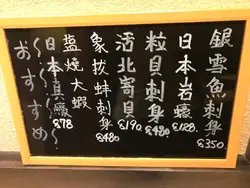 銀雪魚刺身 €350.
日本岩蠔 €128.
粒貝刺身 €480
活北寄貝 €190.
象拔蚌刺身 €480
鹽燒大蝦
日本真蠔 €78
おすすめ